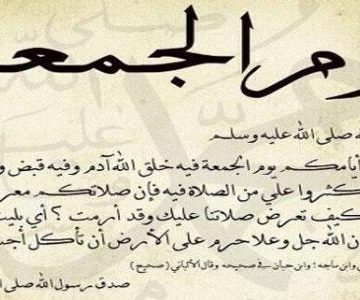 وم الجمع
صلى الله عليه وسلم
أيامكم يوم الجمعة فيه خلق الله آدم وفيه قبض و
كثروا علي من الصلاة فيه فإن صلاتكم معر
كيف تعرض صلاتنا عليك وقد أرمت ؟ أي بليت
ن الله جل وعلا حرم على الأرض أن تأكل أجس
وابن ماجه ؛ وابن حبان في صحيحه وقال الألباني (صحيح)
صدق رسول الله صلى ا